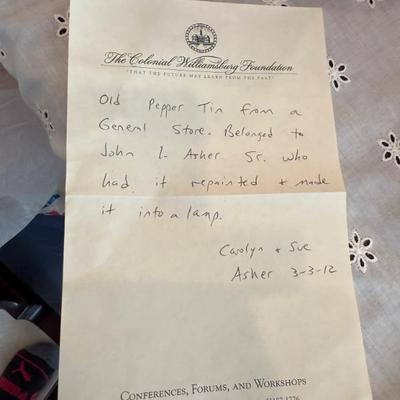 The Colonial Williamsburg Foundation
"THAT THE FUTURE MAY LEARN FROM THE PAST"
Old Pepper Tin from a
General Store. Belonged to
John L. Asher Sr. who
had it repainted + made
it into a lamp.
Carolyn + Sue
Asher 3-3-12
CONFERENCES, FORUMS, AND WORKSHOPS